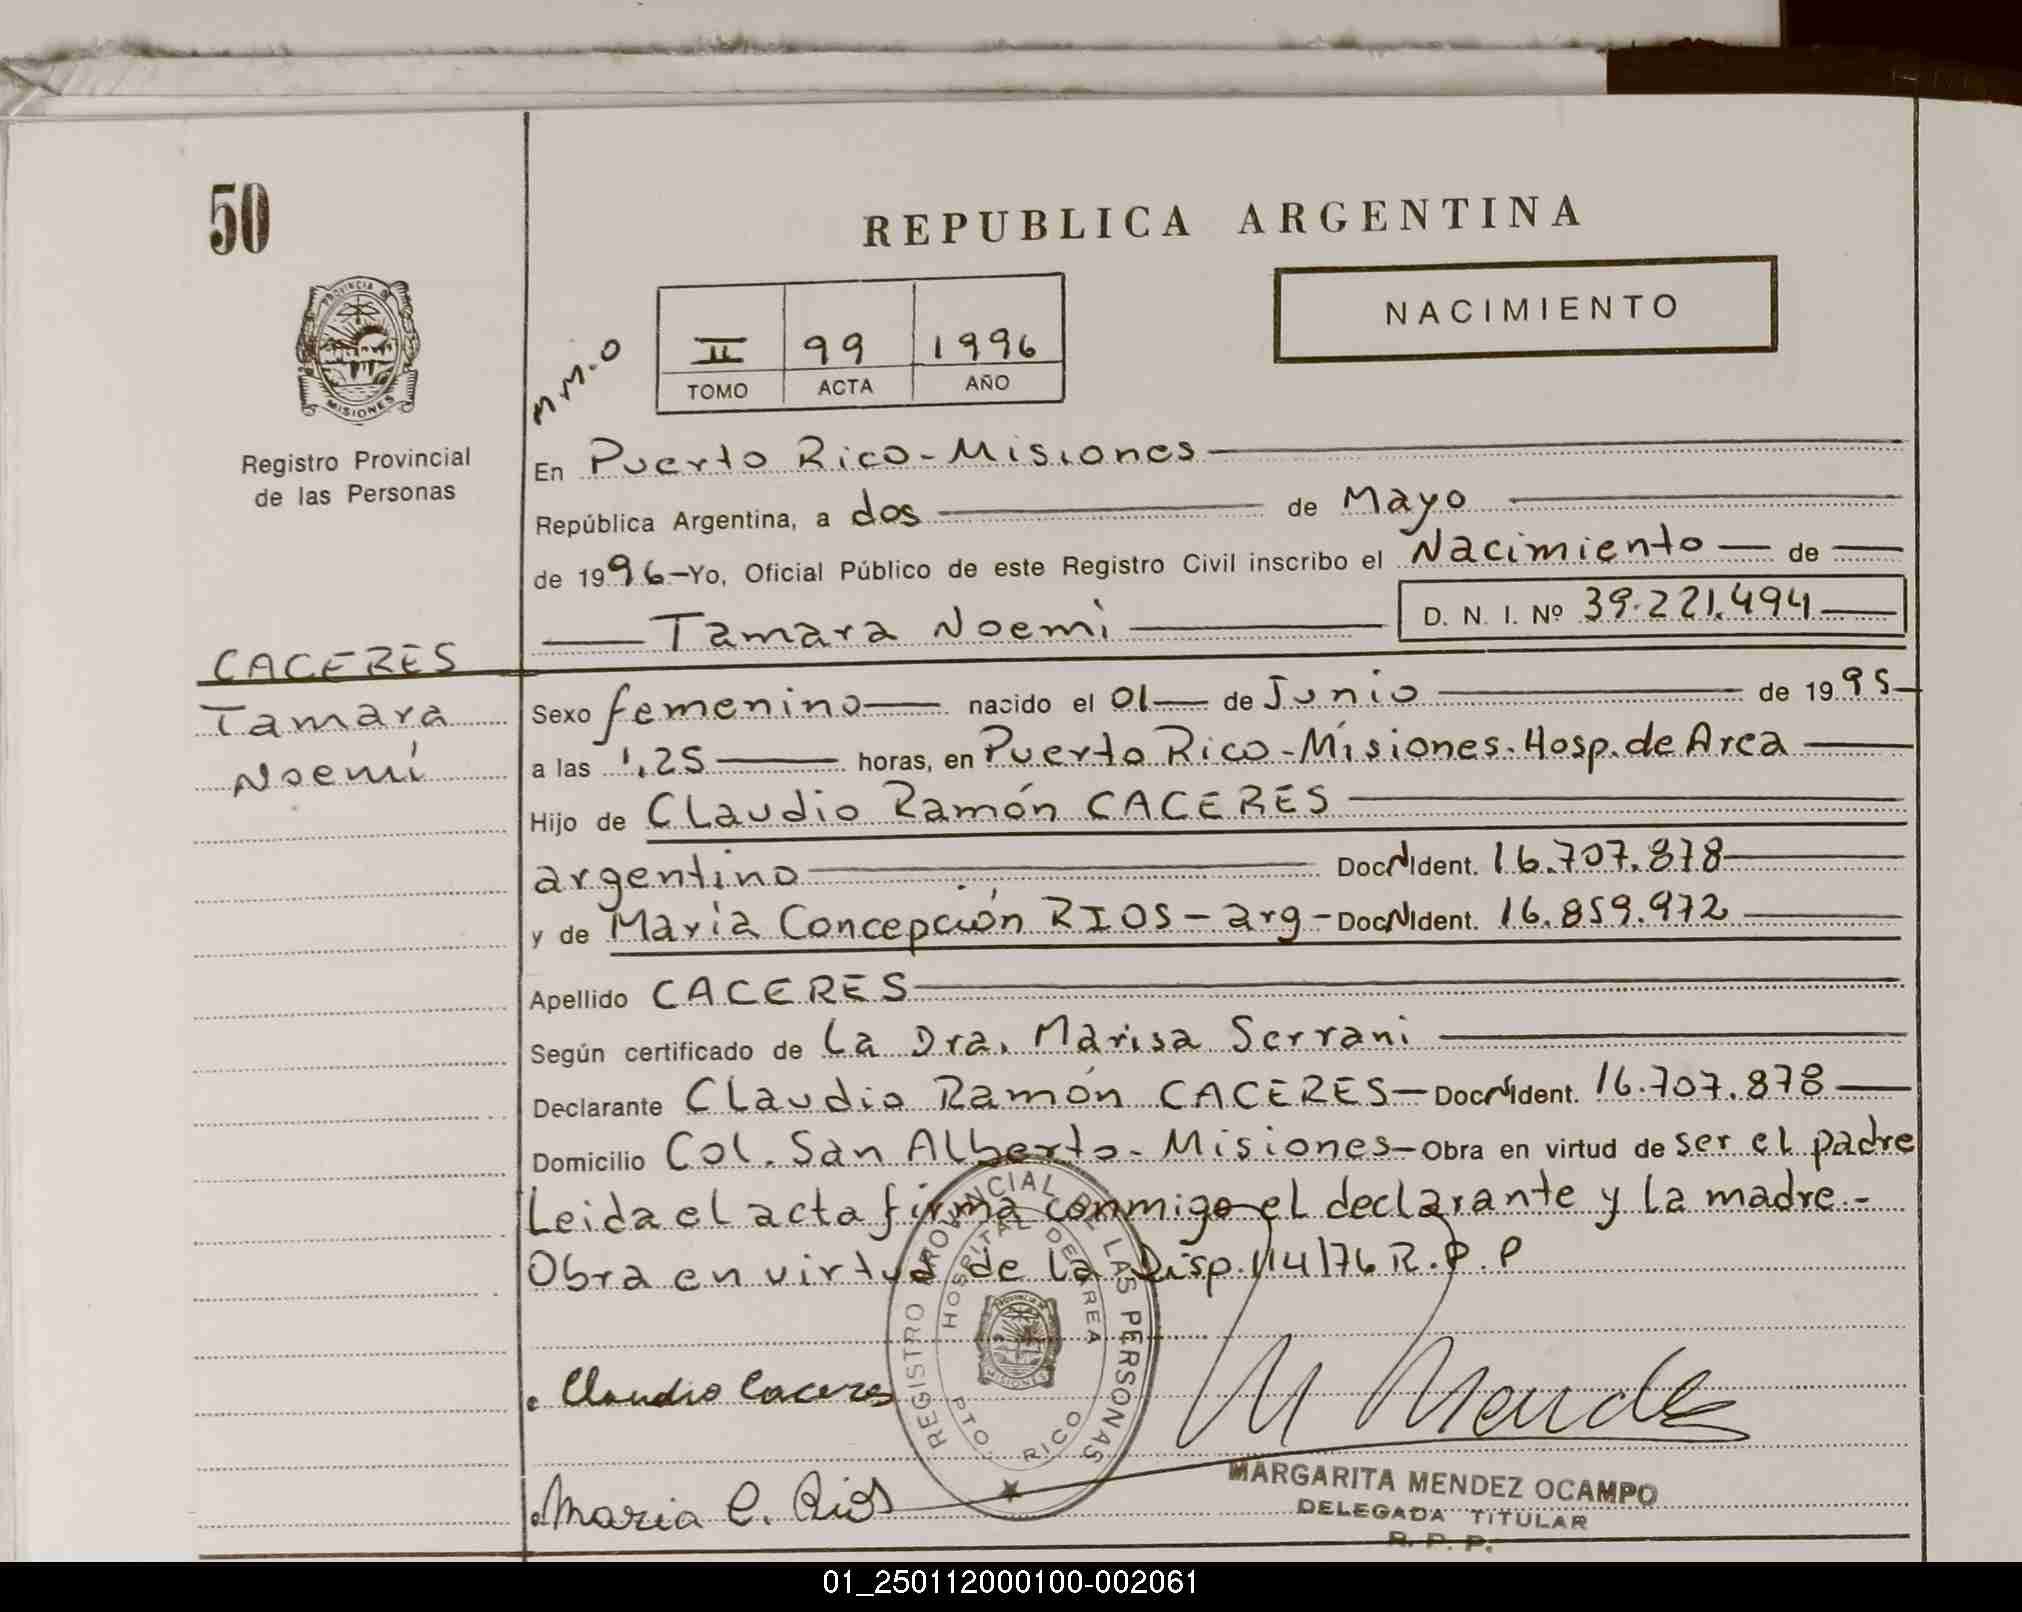 50
REPUBLICA ARGENTINA
NACIMIENTO
M.M.O
II 99 1996
TOMO ACTA AÑO
PROVINCIA DE MISIONES
Registro Provincial
de las Personas
En Puerto Rico - Misiones
República Argentina, a dos de Mayo
de 1996 - Yo, Oficial Público de este Registro Civil inscribo el Nacimiento de
Tamara Noemí D. N. I. Nº 39.221.494
CACERES
Tamara
Noemí
Sexo femenino nacido el 01 de Junio de 1995
a las 1,25 horas, en Puerto Rico - Misiones. Hosp. de Area
Hijo de Claudio Ramón CACERES
argentino Doc. N Ident. 16.707.878
y de María Concepción RIOS - arg - Doc. N Ident. 16.859.972
Apellido CACERES
Según certificado de La Dra. Marisa Serrani
Declarante Claudio Ramón CACERES - Doc. N Ident. 16.707.878
Domicilio Col. San Alberto - Misiones - Obra en virtud de ser el padre
Leida el acta firma conmigo el declarante y la madre.-
Obra en virtud de la Disp. 114/76 R.P.P
REGISTRO PROVINCIAL DE LAS PERSONAS
HOSPITAL DE AREA
PTO. RICO
MISIONES
Claudio Caceres
M Mendez
Maria C. Rios
MARGARITA MENDEZ OCAMPO
DELEGADA TITULAR
R. P. P.
01_250112000100-002061